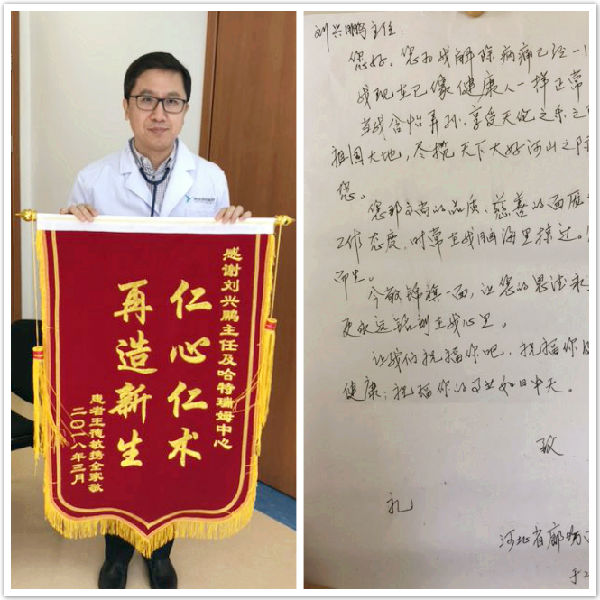 感谢刘兴鹏主任及哈特瑞姆中心
仁心仁术
再造新生
患者王德敏携全家敬
二〇一八年三月
刘兴鹏主任
您好，您为我解除病痛已经一
我现在已像健康人一样正常
当我含怡弄孙，享受天伦之乐之
祖国大地，尽揽天下大好河山之际
您。
您那高尚的品质，慈善的面
工作态度，时常在我脑海里掠过。
而生。
今敬锦旗一面，让您的恩德永
更永远铭刻在我心里。
让我们祝福你吧，祝福你
健康；祝福你的事业如日中天。
致
礼
河北省廊坊
于2